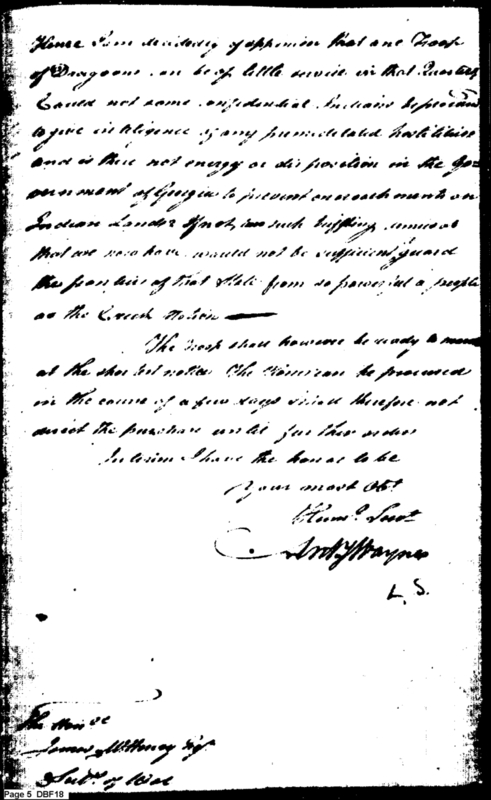 Hence I am decidedly of oppinion that one Troop
of Dragoons can be of little service in that Quarter,
Could not some confidential Indians be procured
to give intelligence of any premeditated hostilities
and is there not energy or disposition in the Gov-
ernment of Georgia to prevent encroachments on
Indian Lands? If not, such trifling
that we now have would not be sufficient guard
the frontiers of that State from so powerful a people
as the Creek Nation —
The troop shall however be ready to move
at the shortest notice The can be procured
in the course of a few days I shall therefore not
direct the purchase until further orders
Interim I have the honor to be
Your most Obt
Humb Servt
Anty Wayne
L. S.
The Honble
James McHenry Esqr
Secty of War
Page 5 DBF18